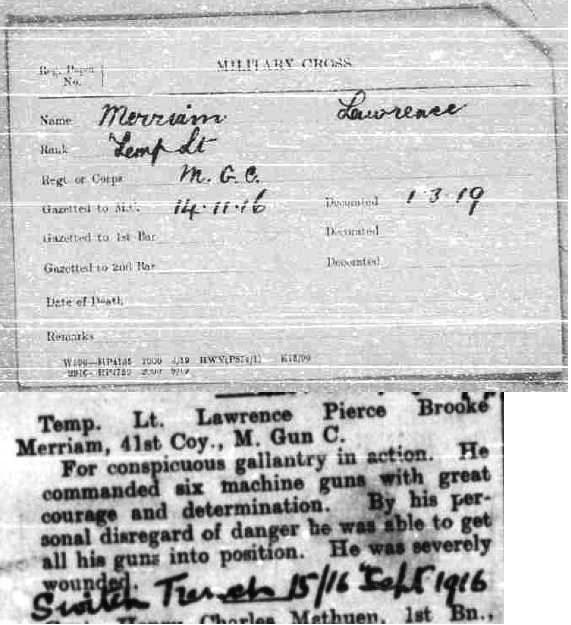 MILITARY CROSS.
Reg. Paper No.
Name Merriam Lawrence
Rank Temp Lt
Regt. or Corps M. G. C.
Gazetted to M.C. 14.11.16 Decorated 1.3.19
Gazetted to 1st Bar Decorated
Gazetted to 2nd Bar Decorated
Date of Death
Remarks
Temp. Lt. Lawrence Pierce Brooke
Merriam, 41st Coy., M. Gun C.
For conspicuous gallantry in action. He
commanded six machine guns with great
courage and determination. By his per-
sonal disregard of danger he was able to get
all his guns into position. He was severely
wounded.
Switch Trench 15/16 Sept 1916
Henry Charles Methuen, 1st Bn.,